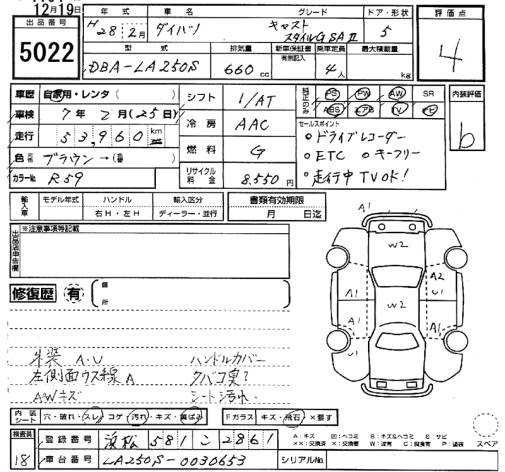 12月19日
出品番号
5022
年式 車名 グレード ドア・形状
H28年2月 ダイハツ キャスト スタイルG SA II 5
評価点
4
型式 排気量 新車保証書 有無記入 乗車定員 最大積載量
DBA-LA250S 660cc 4人 kg
車歴 自家用・レンタ( )
車検 7年2月(25日)
走行 53,960km
色 ブラウン→( )
カラーNo. R59
シフト 1/AT
冷房 AAC
燃料 G
リサイクル料金 8,550円
PS PW AW SR
ABS エアB TV
セールスポイント
○ドライブレコーダー
○ETC ○キーフリー
○走行中TVOK!
内装評価
b
輸入車 モデル年式 ハンドル 輸入区分
右H・左H ディーラー・並行
書類有効期限
月 日迄
出品店申告欄
※注意事項等記載
修復歴 有
箇所
外装A・U
左側面ウス線A
AWキズ
ハンドルカバー
タバコ臭?
シート汚れ
A1
W2
A1 A2
A2 U1
W2
A1 A2
U1
内装シート 穴・破れ・スレ コゲ 汚れ・キズ・
Fガラス キズ・飛石 ×要す
検査員
18
登録番号 浜松 581 こ 2861
車台番号 LA250S-0030653
シリアルNo.
A:キズ U:ヘコミ B:キズ&ヘコミ S:サビ
××:交換済 ×:交換要 W:波有 C:腐食有 P:塗装
スペア